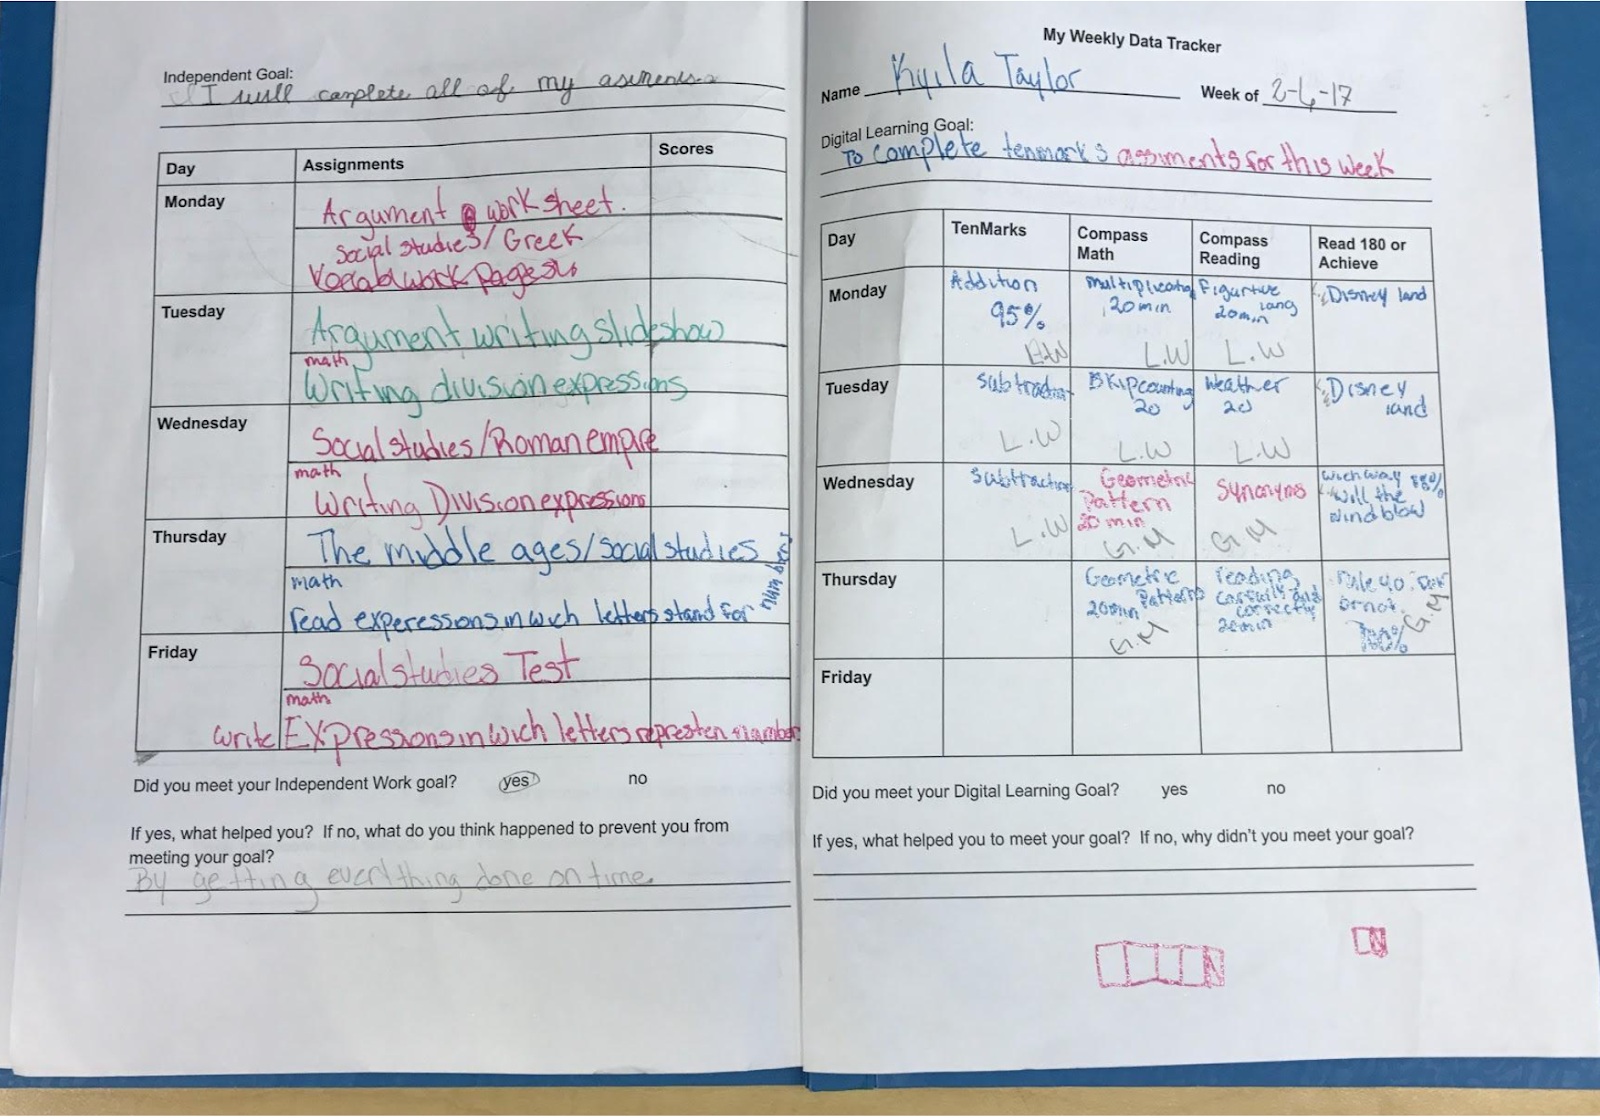 Independent Goal:
I will camplete all of my asinments.
Day Assignments Scores
Monday Argument work sheet.
Social studies / Greek
Vocab work pages
Tuesday Argument writing slideshow
math
Writing division expressions
Wednesday Social studies / Roman empire
math
Writing Division expressions
Thursday The middle ages / social studies
math
read experessions in wich letters stand for numbers
Friday Social studies Test
math
write Expressions in wich letters represten number
Did you meet your Independent Work goal? yes no
If yes, what helped you? If no, what do you think happened to prevent you from
meeting your goal?
By getting everything done on time.
My Weekly Data Tracker
Name Kyila Taylor Week of 2-6-17
Digital Learning Goal:
To complete tenmarks assiments for this week
Day TenMarks Compass Math Compass Reading Read 180 or Achieve
Monday Addition 95% Multiplication 20 min L.W Figurtive lang 20 min L.W Disney land
Tuesday Subtraction L.W Skip counting 20 L.W Weather 20 L.W Disney land
Wednesday Subtraction L.W Geometric Pattern 20 min G.M Synonyms G.M Wich way will the wind blow 88%
Thursday Geometric Patterns 20min G.M reading carfully and correctly 20min rule 40: or not. 100% G.M
Friday
Did you meet your Digital Learning Goal? yes no
If yes, what helped you to meet your goal? If no, why didn't you meet your goal?